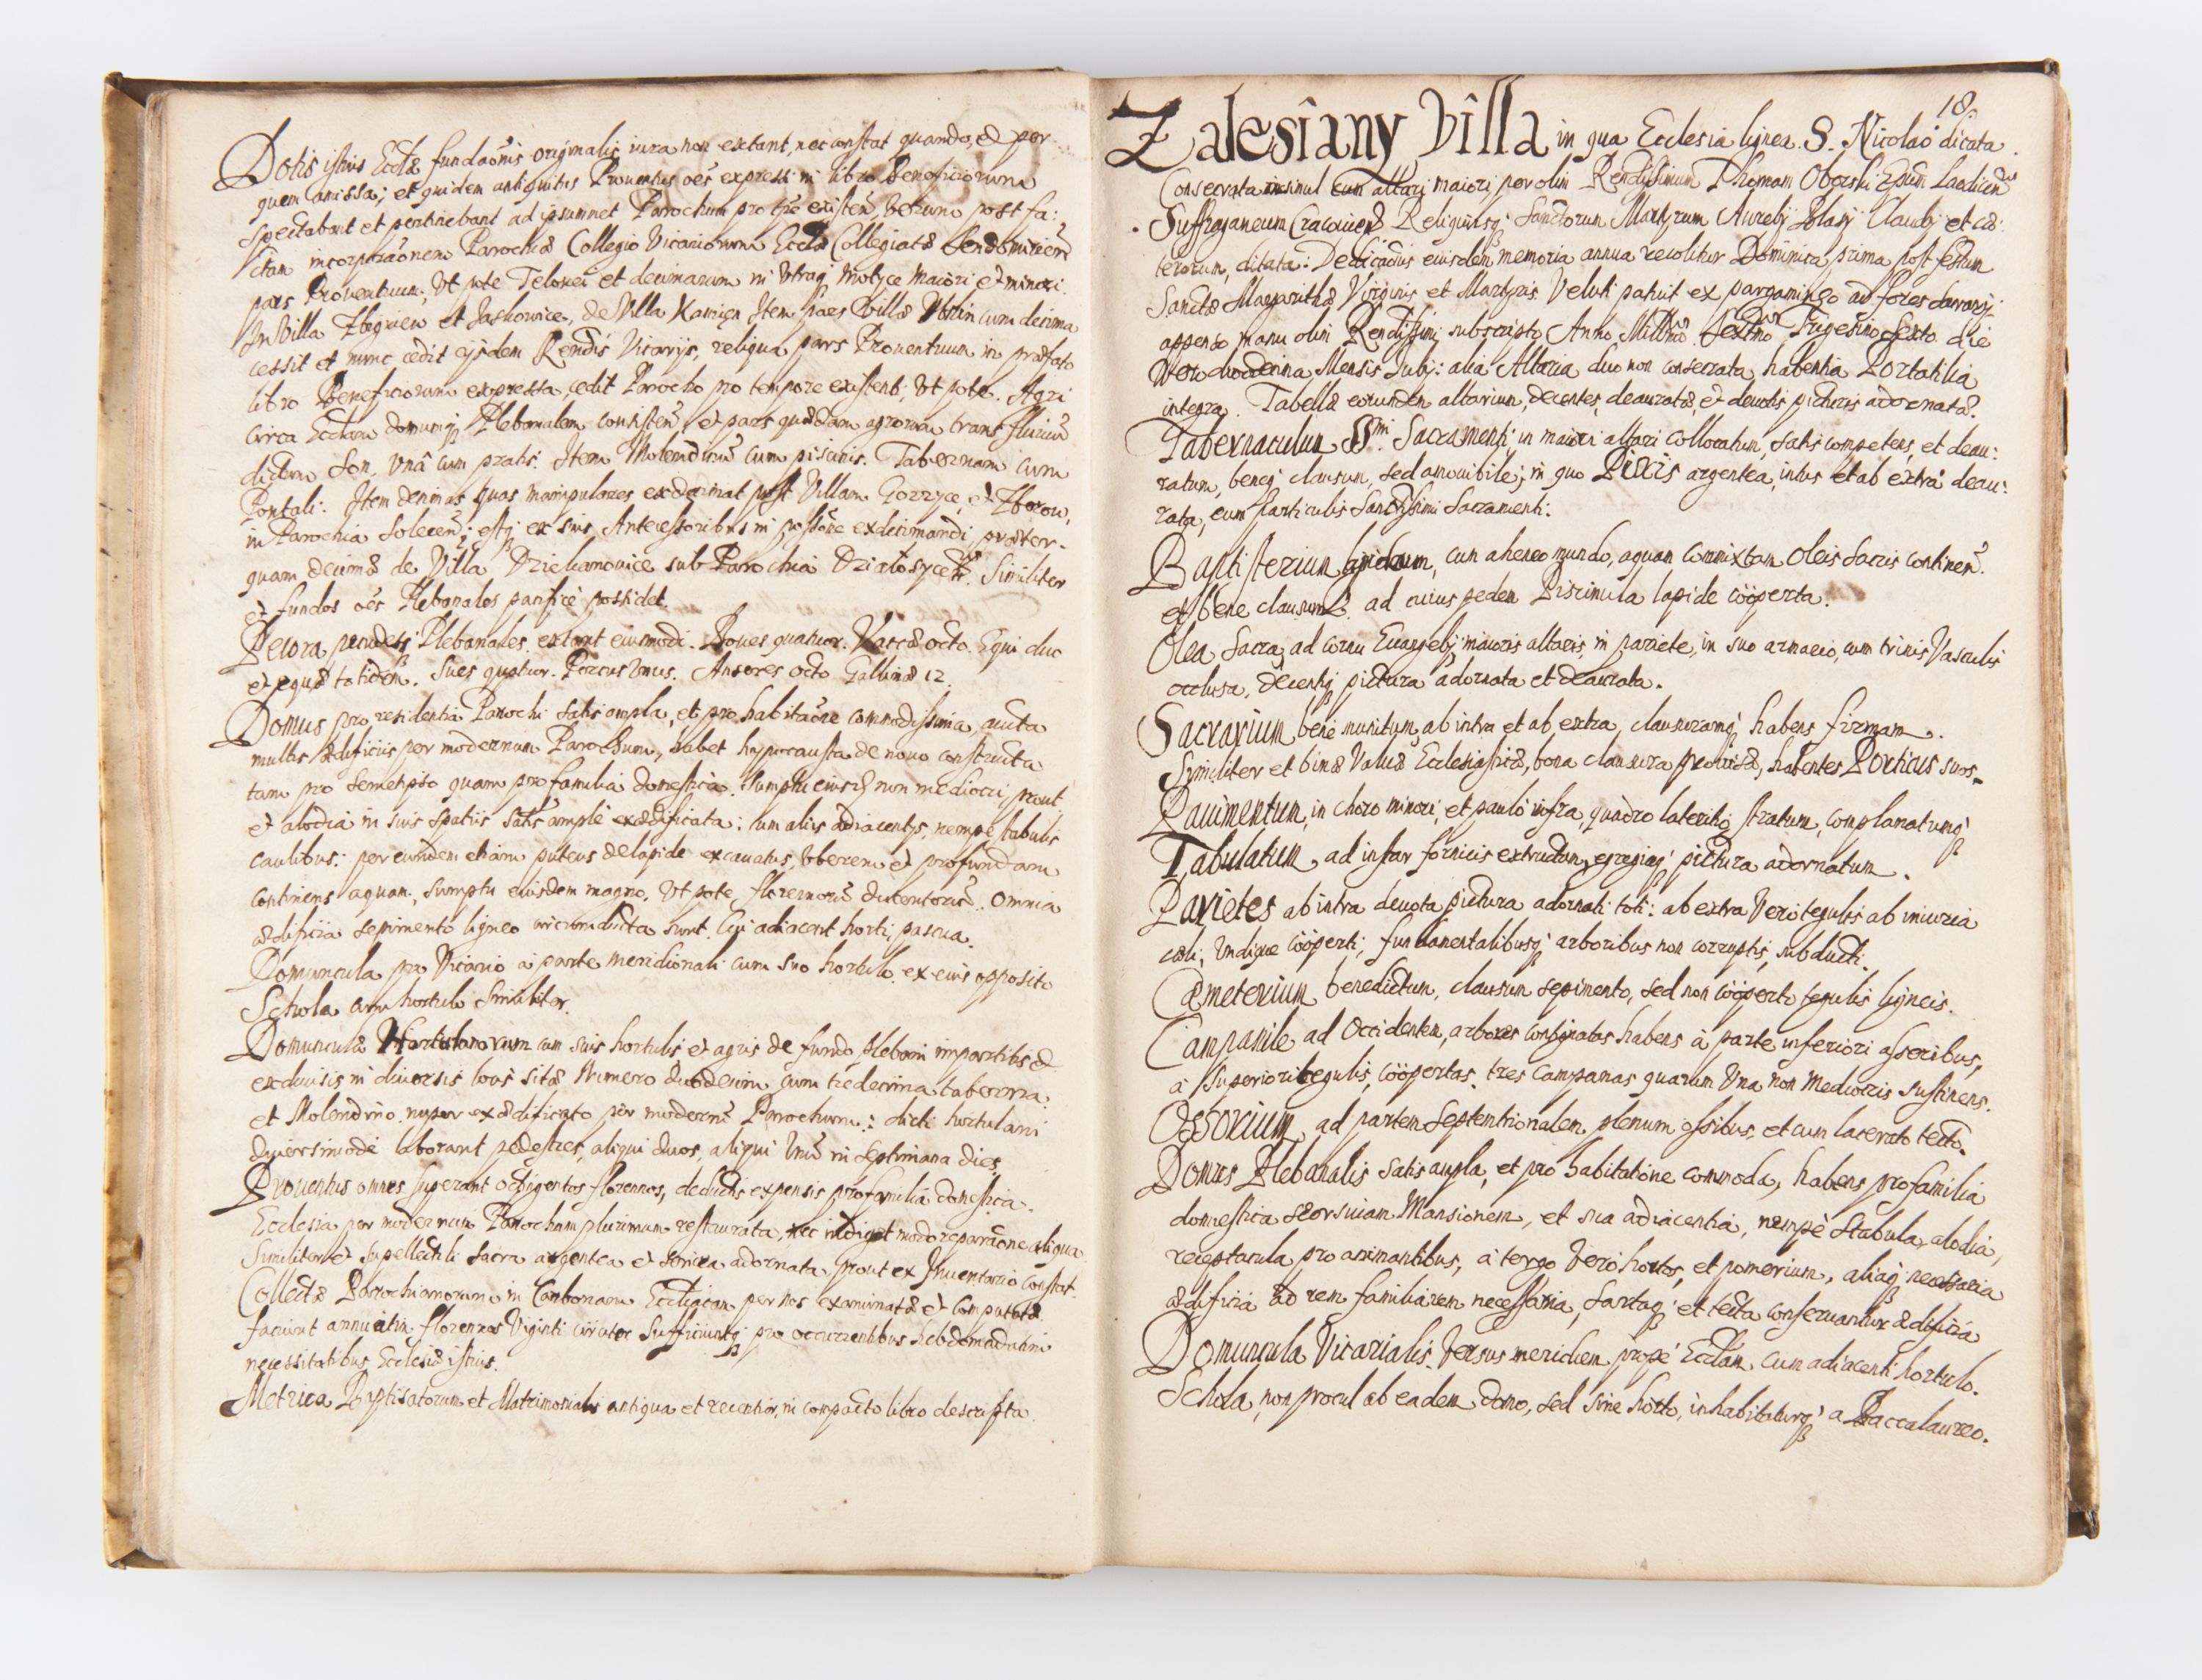 Dotis istius Ecclæ fundaõnis originalis iura non extant, nec constat quando, et per
quem amissa; et quidem antiquitus Prouentus oẽs expressi in libro Beneficiorum
spectabant et pertinebant ad ipsummet Parochum pro tpẽ existeñ, verum post fa:
ctam incorporãonem Parochiæ Collegio Vicariorum Ecclæ Collegiatæ Sendomirieñ
pars Prouentuum, Vt pote Telonei et decimarum in Vtraq; Motyce maiori et minori.
In Villa Zbigniew et Jaskowice, de Villa Item pars Villæ cum decima
cessit et nunc cedit ejsdem Rendis Vicarijs, reliqua pars Prouentuum in præfato
libro Beneficiorum expressa, cedit Parocho pro tempore existenti, Vt pote. Agri
circa Ecclam domumq; Plebanalem consisteñ, et pars quædam agrorum trans fluuiũ
dictum San, Vnâ cum pratis. Item Molendinũ cum piscinis. Tabernam cum
Pontali: Item decimas quas manipulares exdecimat post Villam Gorzyce, et Zborow,
in Parochia Soleceñ; estq; ex suis Antecessoribus in possõne exdecimandi præter-
quam decimæ de Villa Dziekanowice sub Parochia Działosyceñ. Similiter
et fundos oẽs Plebanales pacificè possidet.
Pecora Plebanales extant eiusmodi. Boues quatuor. Vaccæ octo. Equi duo
et equæ totidem. Sues quatuor. Porcus Vnus. Anseres octo Gallinæ 12.
Domus pro residentia Parochi satis ampla, et pro habitaõne commodissima, aucta
multis ædificiis per modernum Parochum, habet hypocausta de nouo constructa
tam pro semetipso quam pro familia domestica. Sumptu eiusd. non mediocri prout
et alodia in suis spatiis satis amplè exædificata: cum aliis adiacentys, nempe stabulis
caulibus: per eundem etiam puteus de lapide excauatus, Vberem et profundam
continens aquam, sumptu eiusdem magno, Vt pote florenorũ ducentorũ. Omnia
ædificia sepimento ligneo circumducta sunt. Cui adiacent horti, pascua.
Domuncula pro Vicario à parte meridionali cum suo hortulo, ex eius opposito
Schola cum hortulo similiter.
Domunculæ Hortulanorum cum suis hortulis et agris de fundo plebani impartitis et
exdiuisis in diuersis locis sitæ Numero duodecim, cum tredecima taberna
et Molendino nuper exædificato per modernũ Parochum: dicti hortulani
diuersimodè laborant pedestres, aliqui duos, aliqui Vnũ in septimana dies.
Prouentus omnes superant octigentos florennos, deductis expensis pro familia domestica.
Ecclesia per modernum Parochum plurimum restaurata, nec indiget modo reparaõne aliqua.
Similiter et supellectili sacra argentea et serica adornata prout ex Inuentario constat.
Collectæ Parochianorum in Carbonam Eccliacam per nos examinatæ et computatæ
faciunt annuatim florennos Viginti circiter sufficiuntq; pro occurrentibus hebdomadatim
necessitatibus Ecclesiæ istius.
Metrica Baptisatorum et Matrimonialis antiqua et recentior, in compacto libro descripta.
18.
Zalesiany Villa in qua Ecclesia lignea S. Nicolao dicata.
Consecrata insimul cum altari maiori, per olim Rendissimum Thomam Oborski Epũm Laodiceñ
Suffraganeum Cracouieñ Reliquiisq; Sanctorum Martyrum Aurelij Claudij et cæ:
terorum, ditata: Dedicaõnis eiusdem memoria annua recolitur Dominica prima post festum
Sanctæ Margarithæ Virginis et Martyris. Veluti patuit ex pargamineo ad fores Sacrarij
appenso manu olim Rendissimi subscripto, Anno Mill̃mo Sextmo Trigesimo Sexto die
Vero duodecima Mensis Julij: alia Altaria duo non consecrata, habentia Portatilia
integra. Tabellæ eorundem altarium, decentes, deauratæ, et deuotis picturis adornatæ.
Tabernaculum SSmi. Sacramenti, in maiori altari collocatum, satis competens, et deau:
ratum, beneq; clausum, sed amouibile; in quo Pixis argentea, intus et ab extrà deau:
rata, cum particulis Sanctissimi Sacramenti.
Baptisterium lapideum, cum aheneo mundo, aquam commixtam Oleis Sacris continen̄.
et bene clausum. ad cuius pedem Piscinula lapide cöoperta.
Olea Sacra, ad cornu Euangelij maioris altaris, in pariete, in suo armario, cum trinis Vasculis
occlusa, decentiq; pictura adornata et deaurata.
Sacrarium bene munitum, ab intra et ab extra, clausuramq; habens firmam.
Similiter et binæ Valuæ Ecclesiasticæ, bona clausura prouisæ, habentes Porticus suos.
Pauimentum, in choro minori, et paulò infra, quadro lateritio stratum, complanatumq;
Tabulatum, ad instar fornicis extructum, egregiaq; pictura adornatum.
Parietes ab intra deuota pictura adornati toti: ab extra Vero tegulis ab iniuria
cæli, Vndique cöoperti, fundamentalibusq; arboribus non corruptis, subducti.
Cæmeterium benedictum, clausum sepimento, sed non cöoperto tegulis ligneis.
Campanile ad Occidentem, arbores consignatas habens à parte inferiori asseribus,
à superiori tegulis, cöopertas, tres Campanas quarum Vna non Mediocris sustinens.
Ossorium, ad partem Septentrionalem plenum ossibus, et cum lacerato tecto.
Domus Plebanalis satis ampla, et pro habitatione commoda, habens pro familia
domestica seorsiuam Mansionem, et sua adiacentia, nempè Stabula, alodia,
receptacula pro animantibus, à tergo Vero hortos, et pomerium, aliaq; necessaria
ædificia ad rem familiarem necessaria, sartaq; et tecta conseruantur ædificia
Domuncula Vicarialis. Versus meridiem propè Ecclam. cum adiacenti hortulo.
Schola, non procul ab eadem domo, sed sine horto, inhabitaturq; a Baccalaureo.